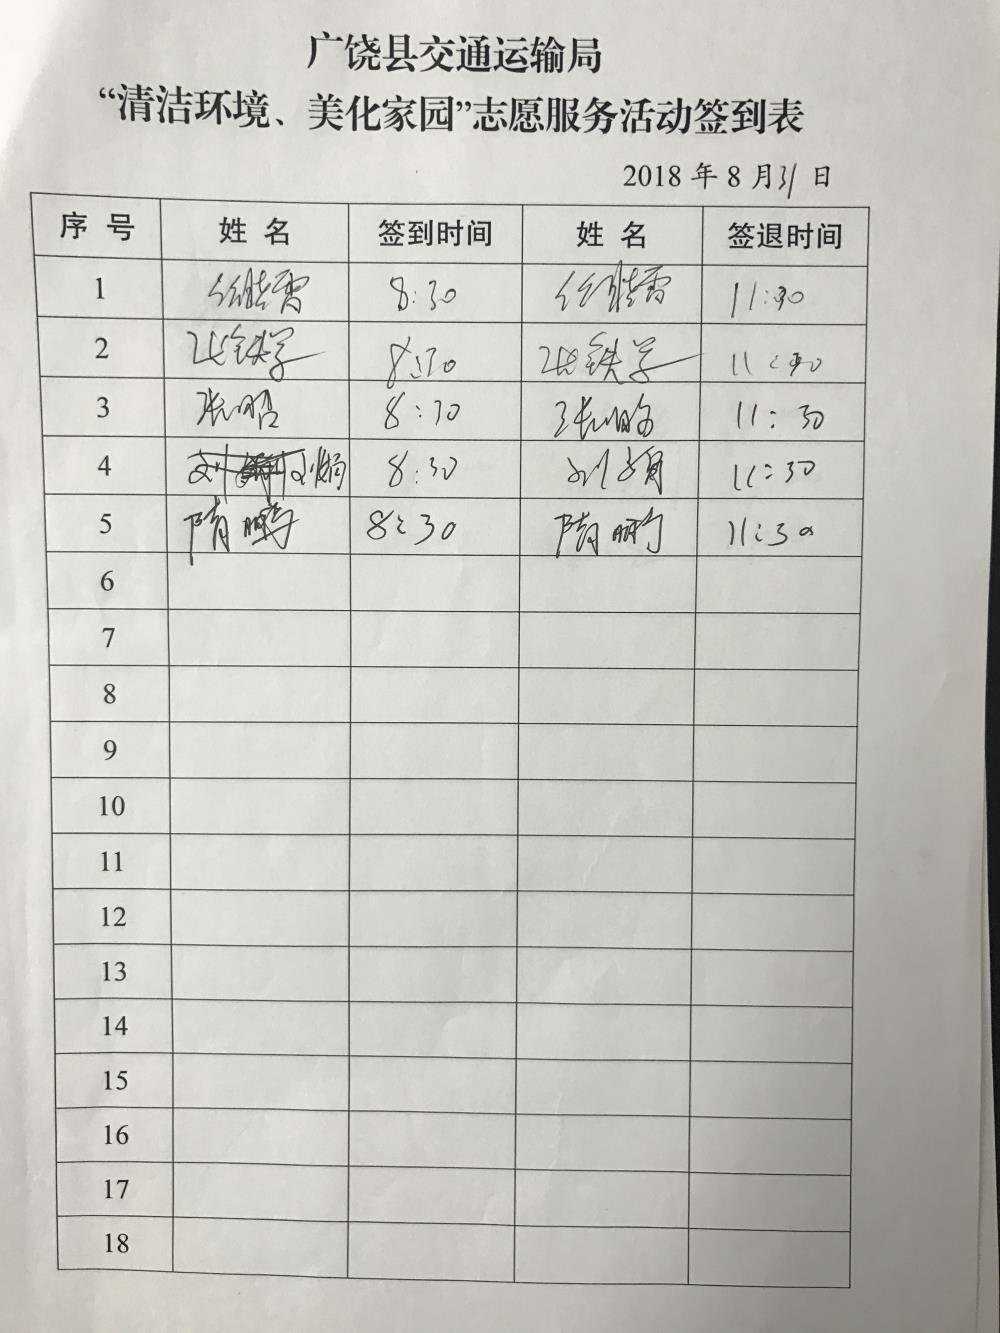 广饶县交通运输局
“清洁环境、美化家园”志愿服务活动签到表
2018 年 8 月 31 日
序 号 姓 名 签到时间 姓 名 签退时间
1 任晓雷 8:30 任晓雷 11:30
2 8:30 11:30
3 张昭 8:30 张昭 11:30
4 刘 8:30 刘 11:30
5 隋鹏 8:30 隋鹏 11:30
6
7
8
9
10
11
12
13
14
15
16
17
18